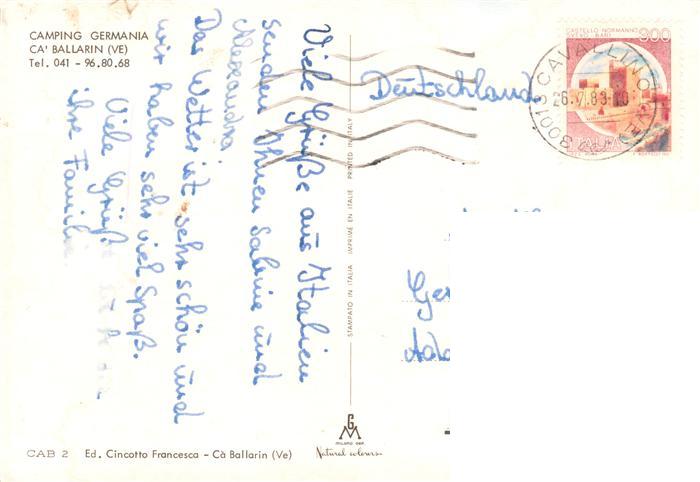 CAMPING GERMANIA
CA' BALLARIN (VE)
Tel. 041 - 96.80.68
Viele Grüße aus Italien
senden Ihnen Sabine und
Alexandra
Das Wetter ist sehr schön und
wir haben sehr viel Spaß.
Viele Grüße
ihre Familie
CAB 2 Ed. Cincotto Francesca - Cà Ballarin (Ve)
STAMPATO IN ITALIA IMPRIMÉ EN ITALIE PRINTED IN ITALY
GM
MILANO DEP.
Natural colours
Deutschland
CASTELLO NORMANNO
SVEVO - BARI
300
CAVALLINO
30013
ITALIA